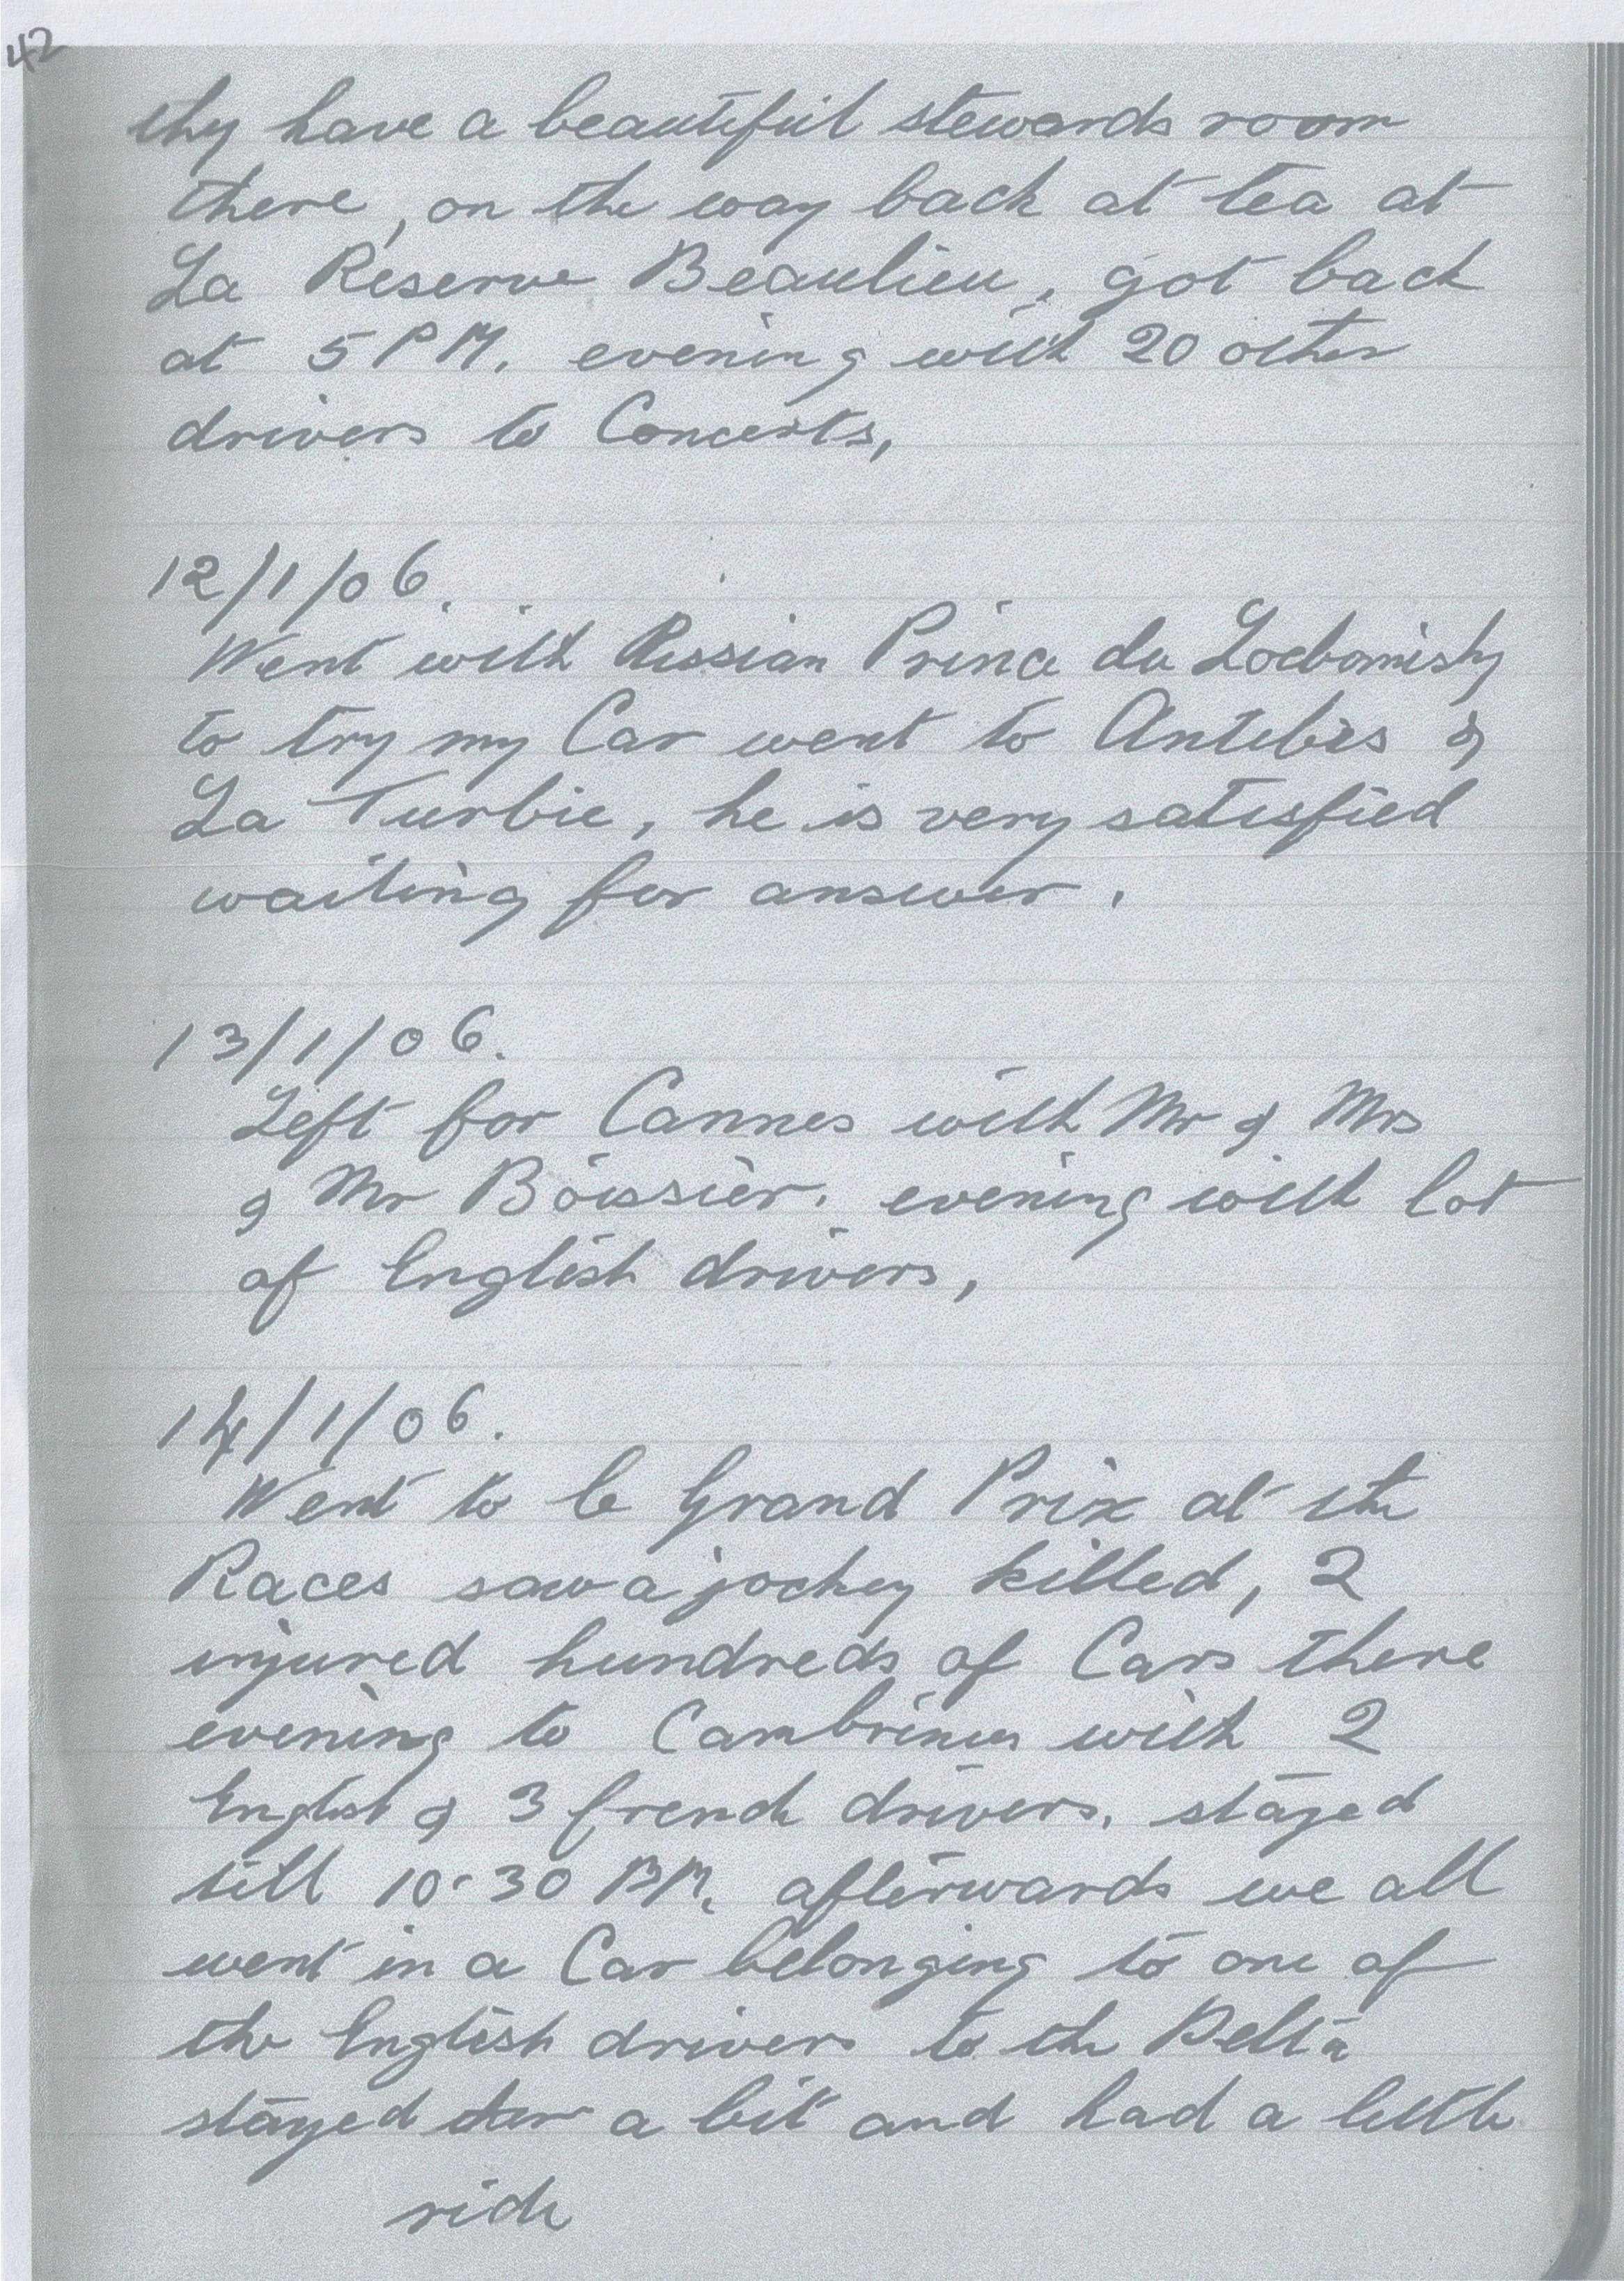 42
they have a beautiful stewards room
there, on the way back at tea at
La Reserve Beaulieu, got back
at 5 PM. evening with 20 other
drivers to Concerts,
12/1/06.
Went with Russian Prince du
to try my Car went to Antibes &
La Turbie, he is very satisfied
waiting for answer.
13/1/06.
Left for Cannes with Mr & Mrs
& Mr Boissier. evening with lot
of English drivers,
14/1/06.
Went to le Grand Prix at the
Races saw a jockey killed, 2
injured hundreds of Cars there
evening to Cambrinus with 2
English & 3 french drivers. stayed
till 10-30 PM. afterwards we all
went in a Car belonging to one of
the English drivers to the Delta
stayed ther a bit and had a little
ride